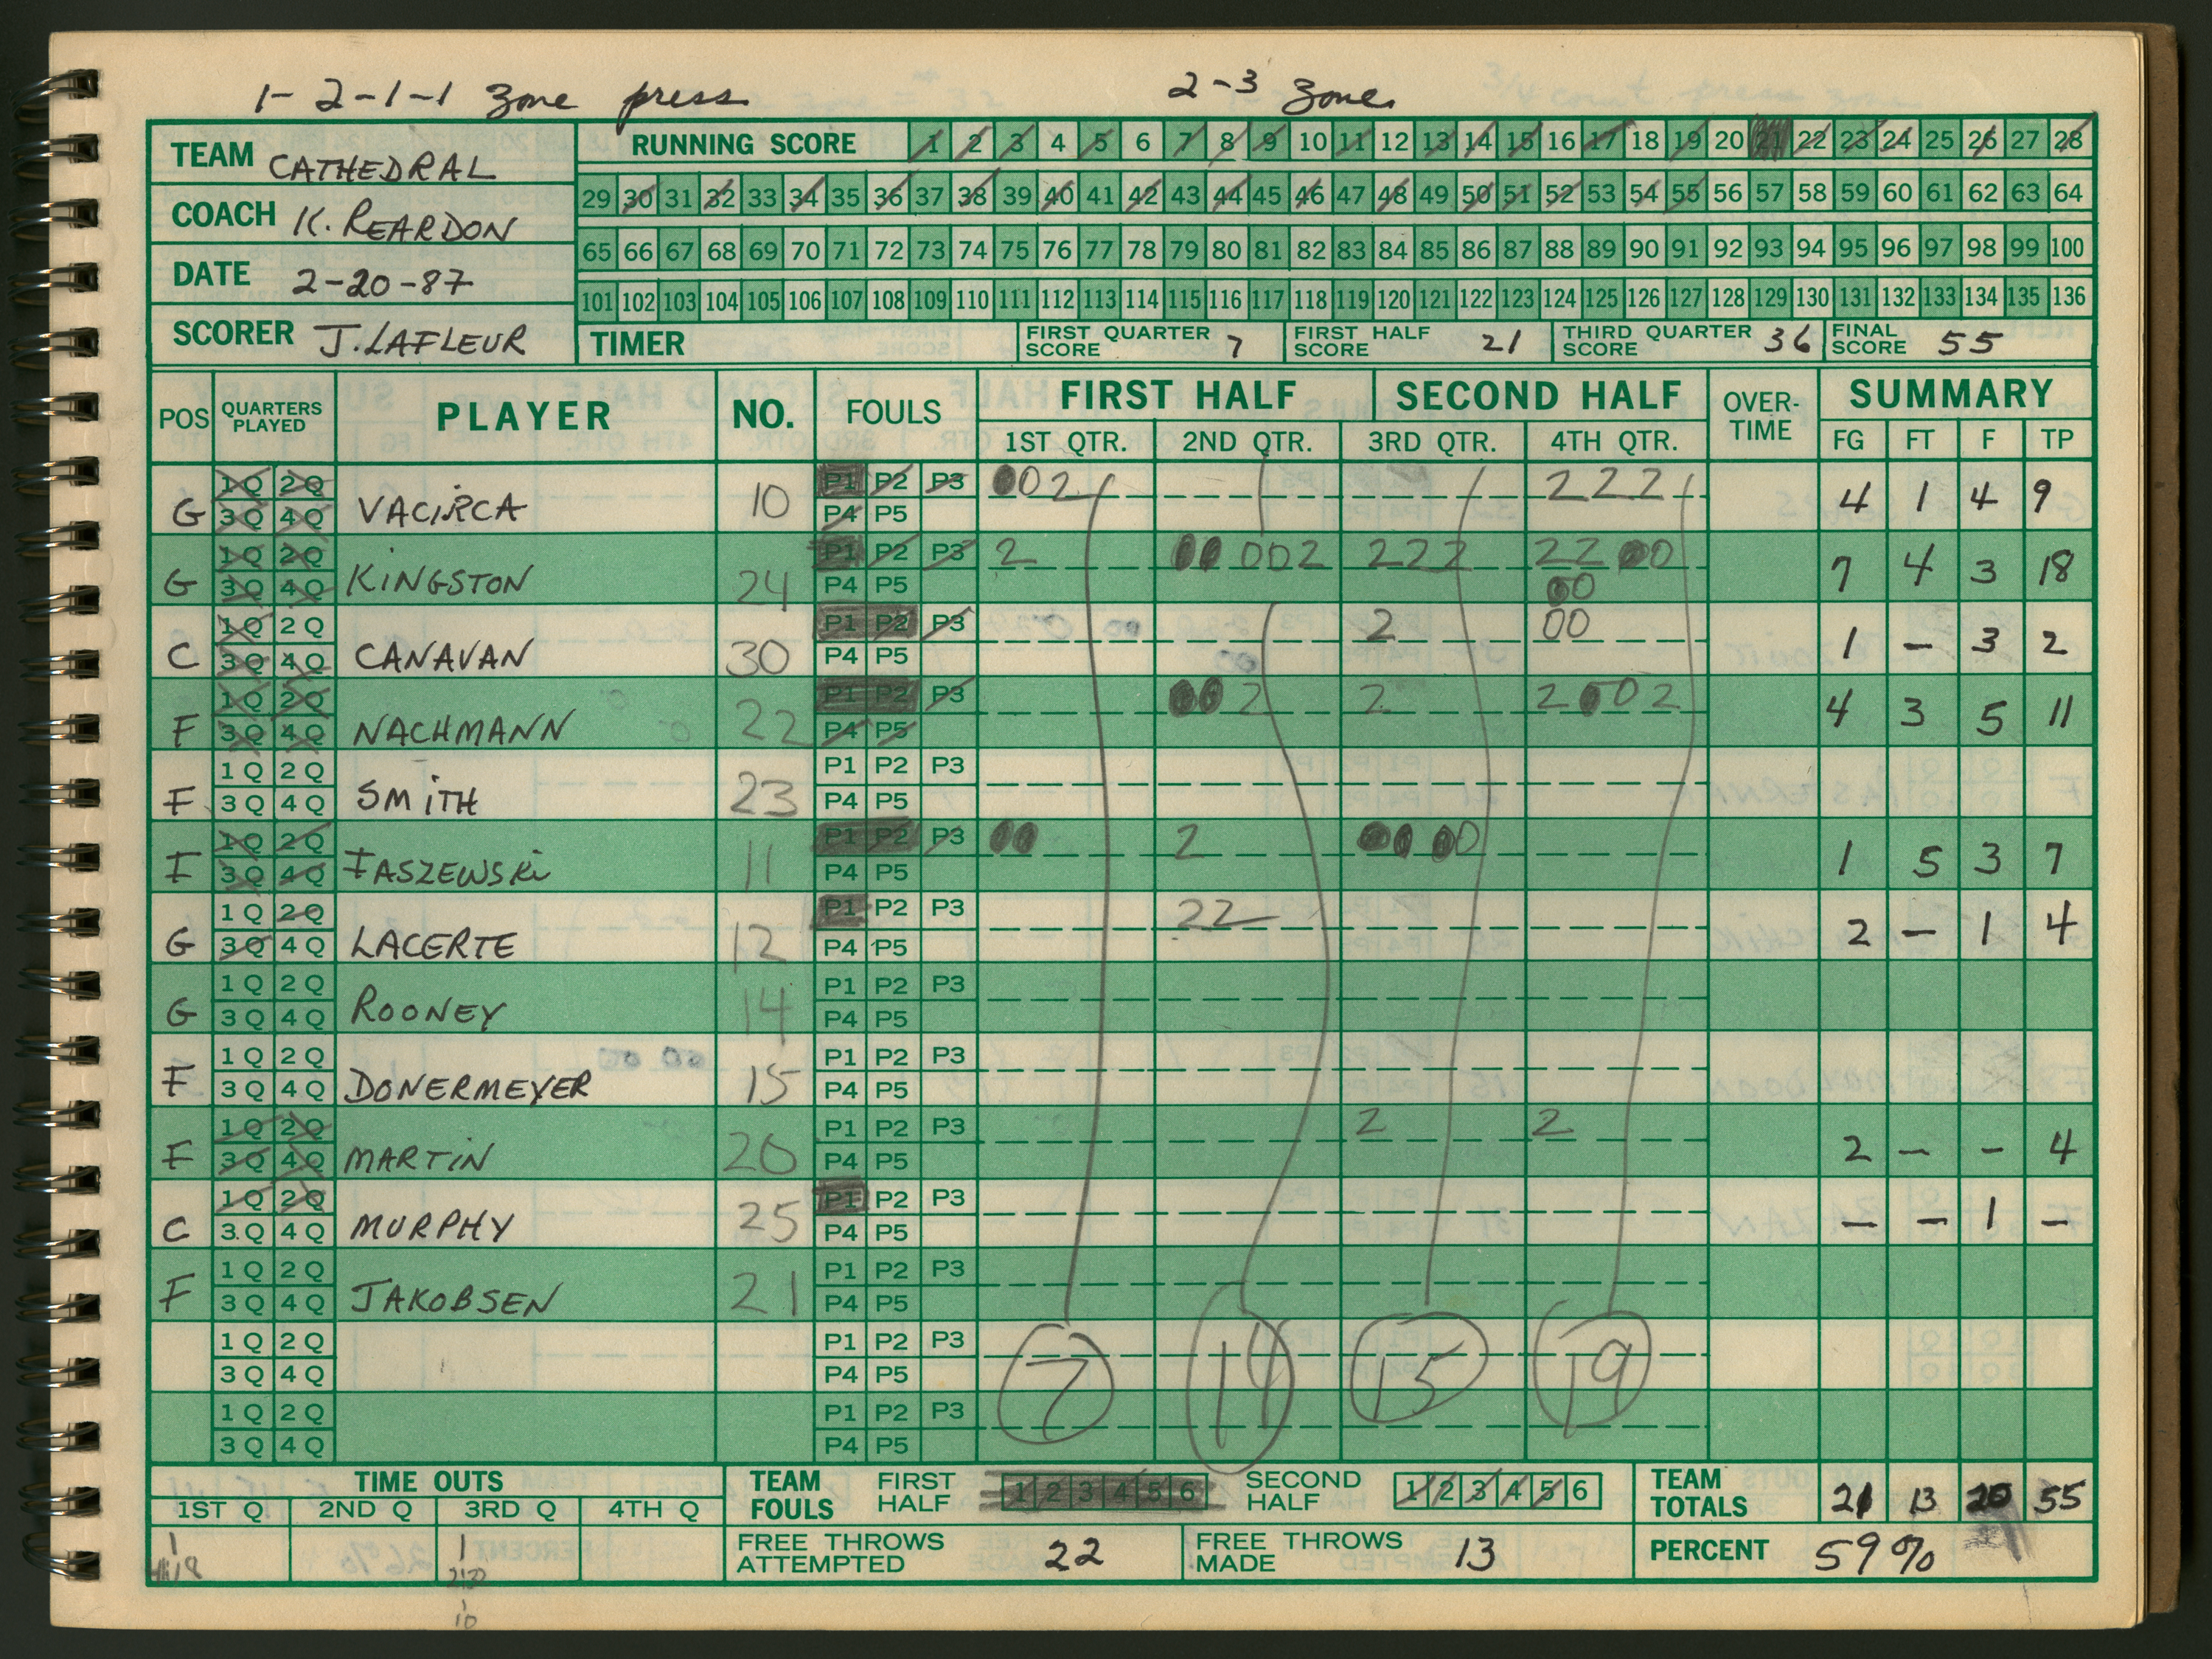 1-2-1-1 zone press 2-3 zone
TEAM CATHEDRAL
COACH K. REARDON
DATE 2-20-87
SCORER J. LAFLEUR
RUNNING SCORE 1 2 3 4 5 6 7 8 9 10 11 12 13 14 15 16 17 18 19 20 21 22 23 24 25 26 27 28
29 30 31 32 33 34 35 36 37 38 39 40 41 42 43 44 45 46 47 48 49 50 51 52 53 54 55 56 57 58 59 60 61 62 63 64
65 66 67 68 69 70 71 72 73 74 75 76 77 78 79 80 81 82 83 84 85 86 87 88 89 90 91 92 93 94 95 96 97 98 99 100
101 102 103 104 105 106 107 108 109 110 111 112 113 114 115 116 117 118 119 120 121 122 123 124 125 126 127 128 129 130 131 132 133 134 135 136
TIMER FIRST QUARTER SCORE 7 FIRST HALF SCORE 21 THIRD QUARTER SCORE 36 FINAL SCORE 55
POS QUARTERS PLAYED PLAYER NO. FOULS FIRST HALF SECOND HALF OVER-TIME SUMMARY
1ST QTR. 2ND QTR. 3RD QTR. 4TH QTR. FG FT F TP
1Q 2Q P1 P2 P3 002 222
G 3Q 4Q VACIRCA 10 P4 P5 4 1 4 9
1Q 2Q P1 P2 P3 2 00 002 222 22 00
G 3Q 4Q KINGSTON 24 P4 P5 00 7 4 3 18
1Q 2Q P1 P2 P3 2 00
C 3Q 4Q CANAVAN 30 P4 P5 1 - 3 2
1Q 2Q P1 P2 P3 00 2 2 2 00 2
F 3Q 4Q NACHMANN 22 P4 P5 4 3 5 11
1Q 2Q P1 P2 P3
F 3Q 4Q SMITH 23 P4 P5
1Q 2Q P1 P2 P3 00 2 00 00
F 3Q 4Q FASZEWSKI 11 P4 P5 1 5 3 7
1Q 2Q P1 P2 P3 22
G 3Q 4Q LACERTE 12 P4 P5 2 - 1 4
1Q 2Q P1 P2 P3
G 3Q 4Q ROONEY 14 P4 P5
1Q 2Q P1 P2 P3
F 3Q 4Q DONERMEYER 15 P4 P5
1Q 2Q P1 P2 P3 2 2
F 3Q 4Q MARTIN 20 P4 P5 2 - - 4
1Q 2Q P1 P2 P3
C 3Q 4Q MURPHY 25 P4 P5 - - 1 -
1Q 2Q P1 P2 P3
F 3Q 4Q JAKOBSEN 21 P4 P5
1Q 2Q P1 P2 P3
3Q 4Q P4 P5 7 14 15 19
1Q 2Q P1 P2 P3
3Q 4Q P4 P5
TIME OUTS TEAM FOULS FIRST HALF 1 2 3 4 5 6 SECOND HALF 1 2 3 4 5 6 TEAM TOTALS 21 13 20 55
1ST Q 2ND Q 3RD Q 4TH Q
1 1 FREE THROWS ATTEMPTED 22 FREE THROWS MADE 13 PERCENT 59%